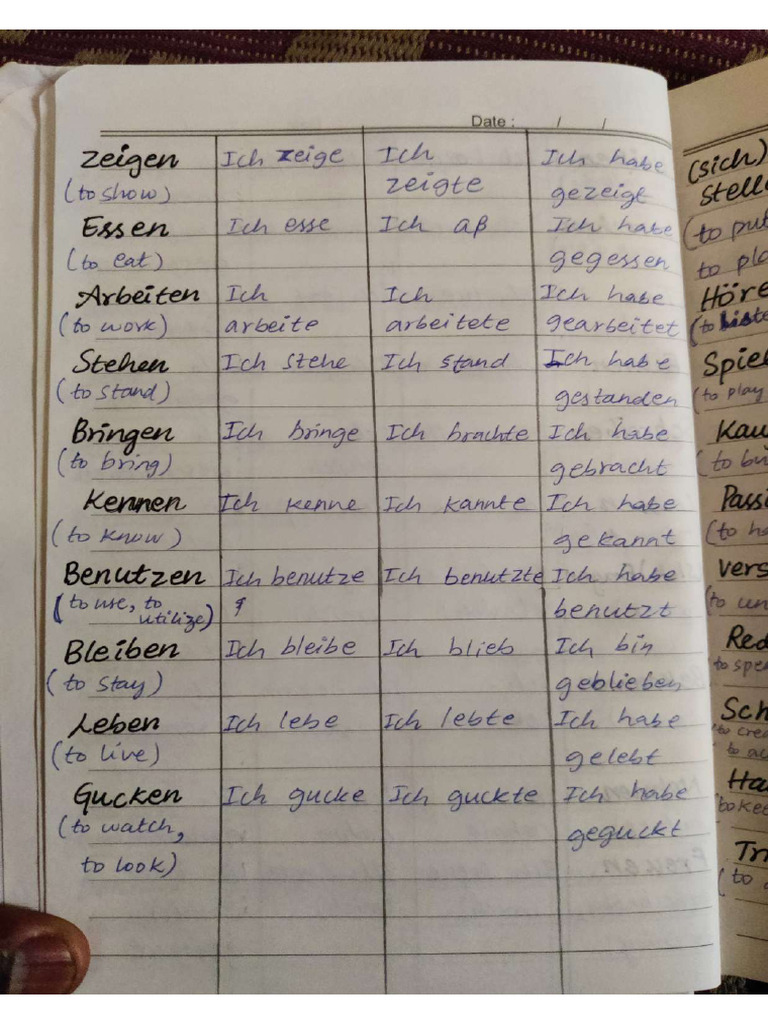 Date : / /
Zeigen Ich zeige Ich Ich habe
(to show) zeigte gezeigt
Essen Ich esse Ich aß Ich habe
(to eat) gegessen
Arbeiten Ich Ich Ich habe
(to work) arbeite arbeitete gearbeitet
Stehen Ich stehe Ich stand Ich habe
(to stand) gestanden
Bringen Ich bringe Ich brachte Ich habe
(to bring) gebracht
Kennen Ich kenne Ich kannte Ich habe
(to know) gekannt
Benutzen Ich benutze Ich benutzte Ich habe
(to use, to benutzt
utilize)
Bleiben Ich bleibe Ich blieb Ich bin
(to stay) geblieben
Leben Ich lebe Ich lebte Ich habe
(to live) gelebt
Gucken Ich gucke Ich guckte Ich habe
(to watch, geguckt
to look)
(sich)
Stell
(to put
to pla
Höre
(to liste
Spiel
(to play
Kau
(to bu
Passi
(to ha
Vers
(to un
Red
to spe
Sch
to crea
to
Ha
Tr
(to